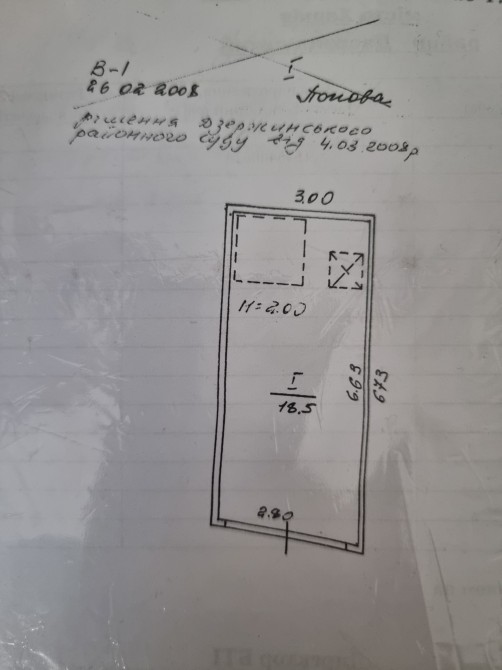 В-1
26 02 2008
I
Попова
рішення Дзержинського
районного суду від 4.03.2008р
3.00
H=2.00
I
18.5
6.63
6.73
2.80